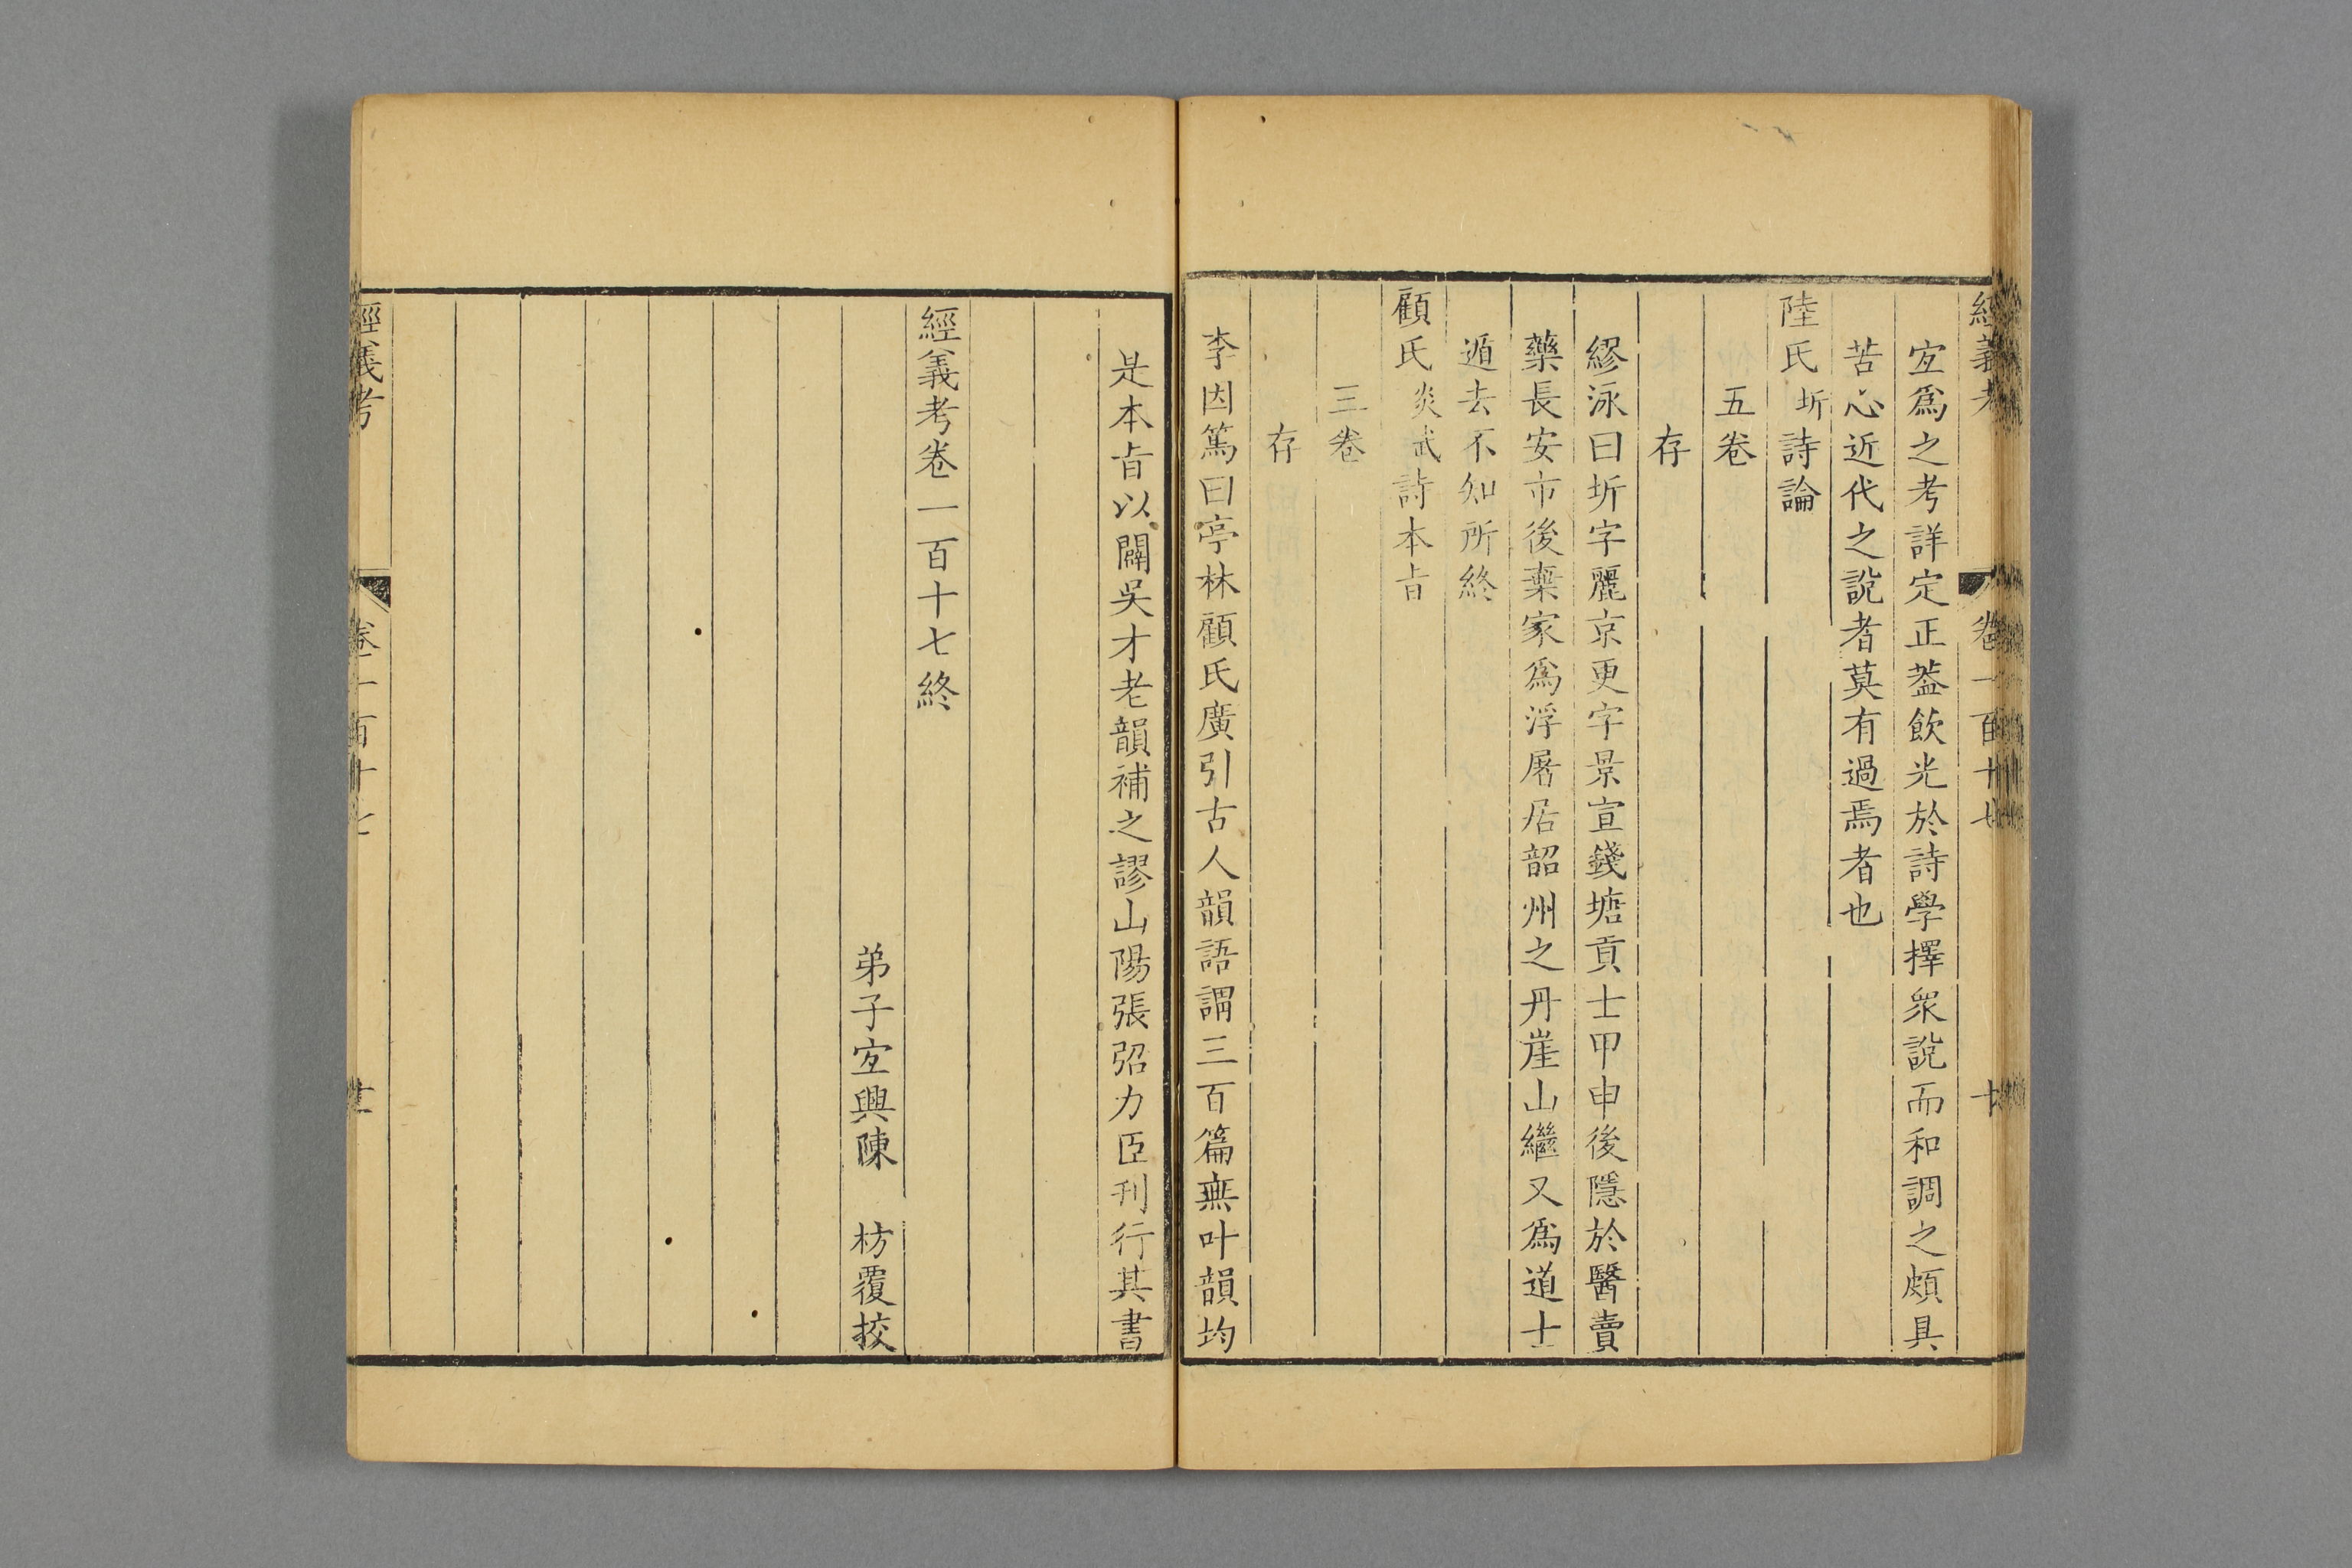 經義考 卷一百十七 十
宐爲之考詳定正葢飲光於詩學擇衆說而和調之頗具
苦心近代之說者莫有過焉者也
陸氏圻詩論
五卷
存
繆泳曰圻字麗京更字景宣錢塘貢士甲申後隱於醫賣
藥長安市後棄家爲浮屠居韶州之丹崖山繼又爲道士
遁去不知所終
顧氏炎武詩本㫖
三卷
存
李因篤曰亭林顧氏廣引古人韻語謂三百篇無叶韻均
是本㫖以闢吳才老韻補之謬山陽張弨力臣刊行其書
經義考卷一百十七終
弟子宐興陳 枋覆挍
經義考 卷一百十七